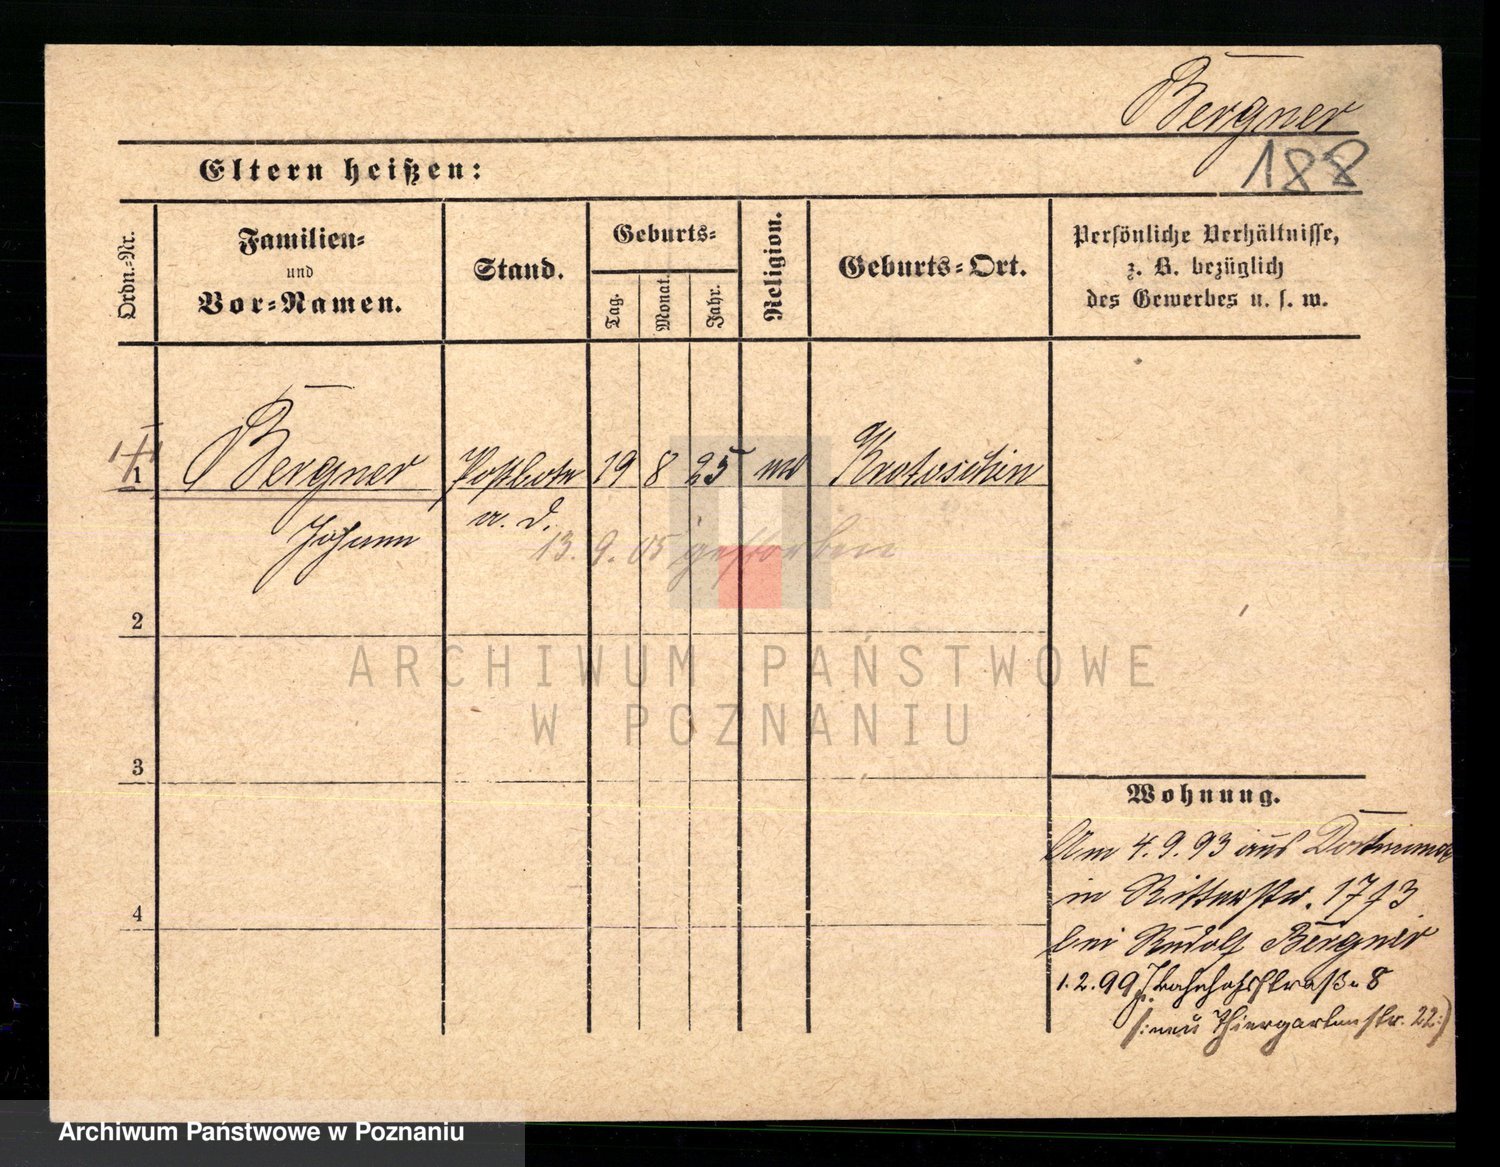 Bergner
188
Eltern heißen:
Ordn.-Nr.
Familien-
und
Vor-Namen.
Stand.
Geburts-
Tag.
Monat.
Jahr.
Religion.
Geburts-Ort.
Persönliche Verhältnisse,
z. B. bezüglich
des Gewerbes u. s. w.
1
Bergner Postbote 19 8 25 Krotoschin
Johann a. D.
13. 9. 05 gestorben
2
3
4
ARCHIWUM PAŃSTWOWE
W POZNANIU
Wohnung.
Am 4. 9. 93 aus
in Ritterstr. 17/3
bei Rudolf Bergner
1. 2. 99 Bahnhofstraße 8
/: neu Thiergartenstr. 22 :/
Archiwum Państwowe w Poznaniu